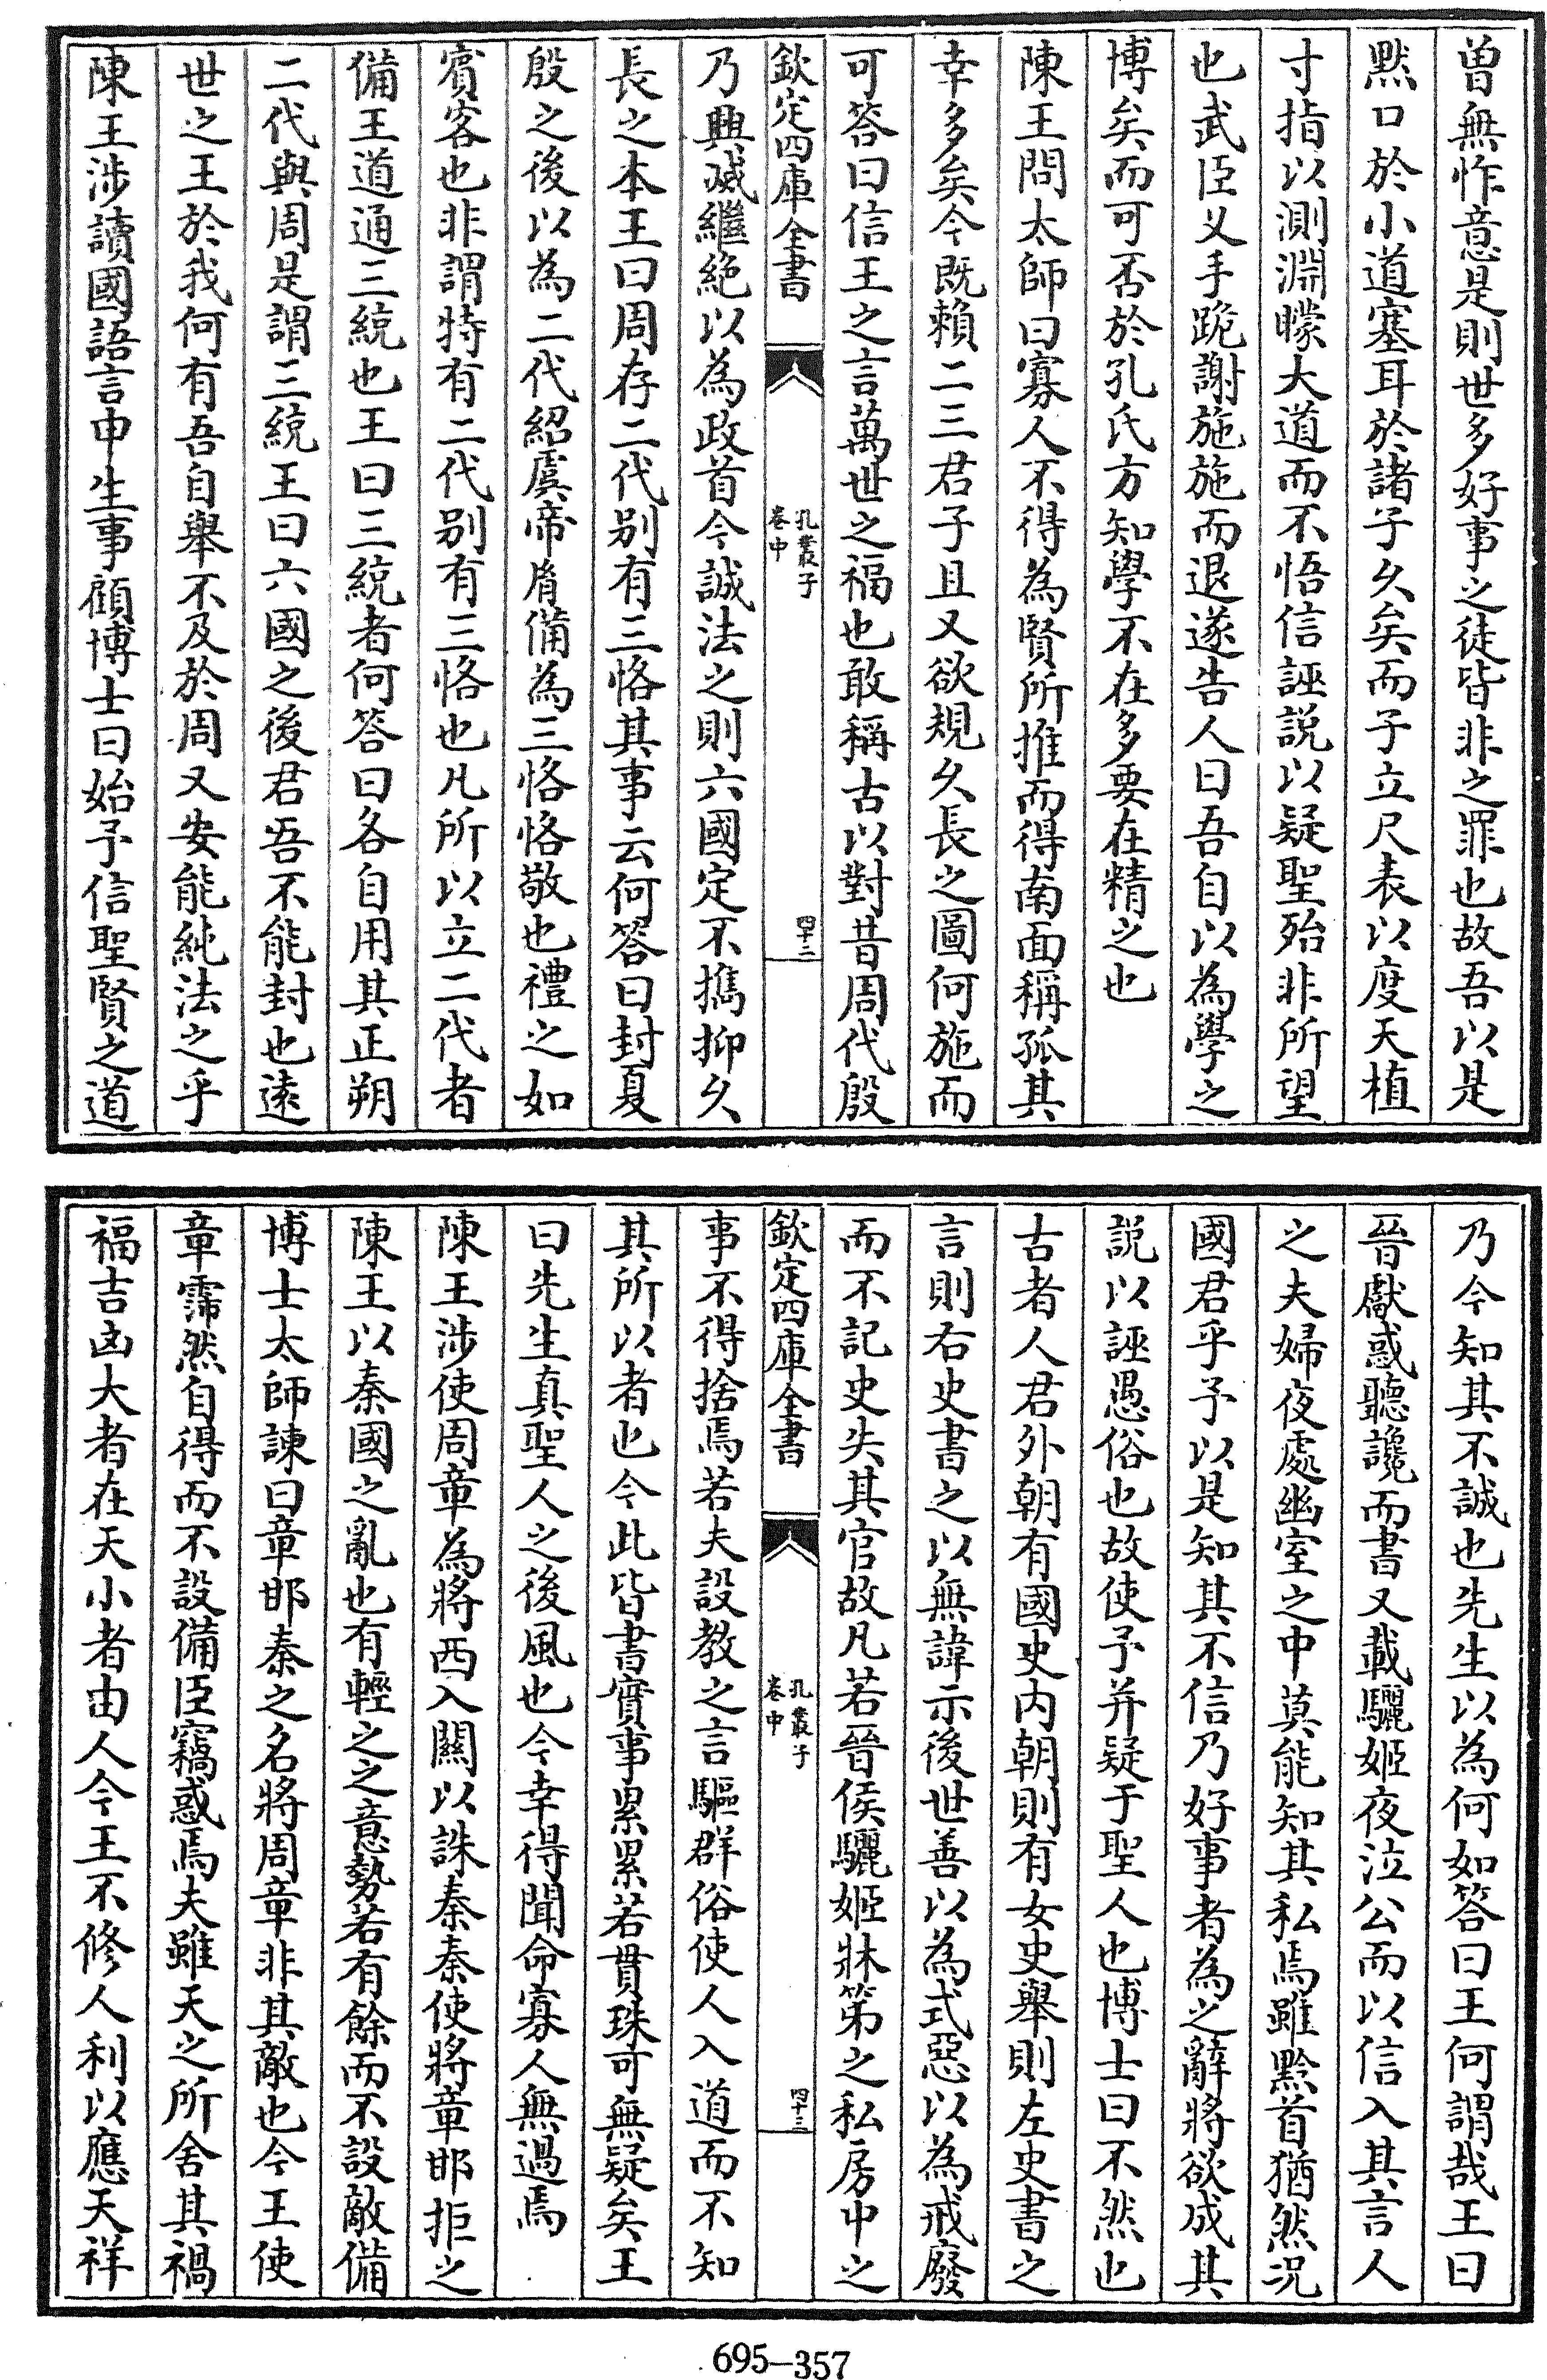 曽無怍意是則世多好事之徒皆非之罪也故吾以是
黙口於小道塞耳於諸子乆矣而子立尺表以度天植
寸指以測淵矇大道而不悟信誣説以疑聖殆非所望
也武臣乂手跪謝施施而退遂告人曰吾自以為學之
博矣而可否於孔氏方知學不在多要在精之也
陳王問太師曰寡人不得為賢所推而得南面稱孤其
幸多矣今既賴二三君子且又欲規乆長之圖何施而
可答曰信王之言萬世之福也敢稱古以對昔周代殷
欽定四庫全書
孔叢子
卷中
四十二
乃興滅繼絶以為政首今誠法之則六國定不攜抑乆
長之本王曰周存二代别有三恪其事云何答曰封夏
殷之後以為二代紹虞帝胤備為三恪恪敬也禮之如
賓客也非謂特有二代别有三恪也凡所以立二代者
備王道通三統也王曰三統者何答曰各自用其正朔
二代與周是謂三統王曰六國之後君吾不能封也逺
世之王於我何有吾自舉不及於周又安能純法之乎
陳王涉讀國語言申生事顧博士曰始予信聖賢之道
乃今知其不誠也先生以為何如答曰王何謂哉王曰
晉獻惑聽讒而書又載驪姬夜泣公而以信入其言人
之夫婦夜處幽室之中莫能知其私焉雖黔首猶然况
國君乎予以是知其不信乃好事者為之辭將欲成其
説以誣愚俗也故使予并疑于聖人也博士曰不然也
古者人君外朝有國史内朝則有女史舉則左史書之
言則右史書之以無諱示後世善以為式惡以為戒廢
而不記史失其官故凡若晉侯驪姬牀笫之私房中之
欽定四庫全書
孔叢子
卷中
四十三
事不得捨焉若夫設教之言驅群俗使人入道而不知
其所以者也今此皆書實事累累若貫珠可無疑矣王
曰先生真聖人之後風也今幸得聞命寡人無過焉
陳王涉使周章為將西入關以誅秦秦使將章邯拒之
陳王以秦國之亂也有輕之之意勢若有餘而不設敵備
博士太師諫曰章邯秦之名將周章非其敵也今王使
章霈然自得而不設備臣竊惑焉夫雖天之所舍其禍
福吉凶大者在天小者由人今王不修人利以應天祥
695-357